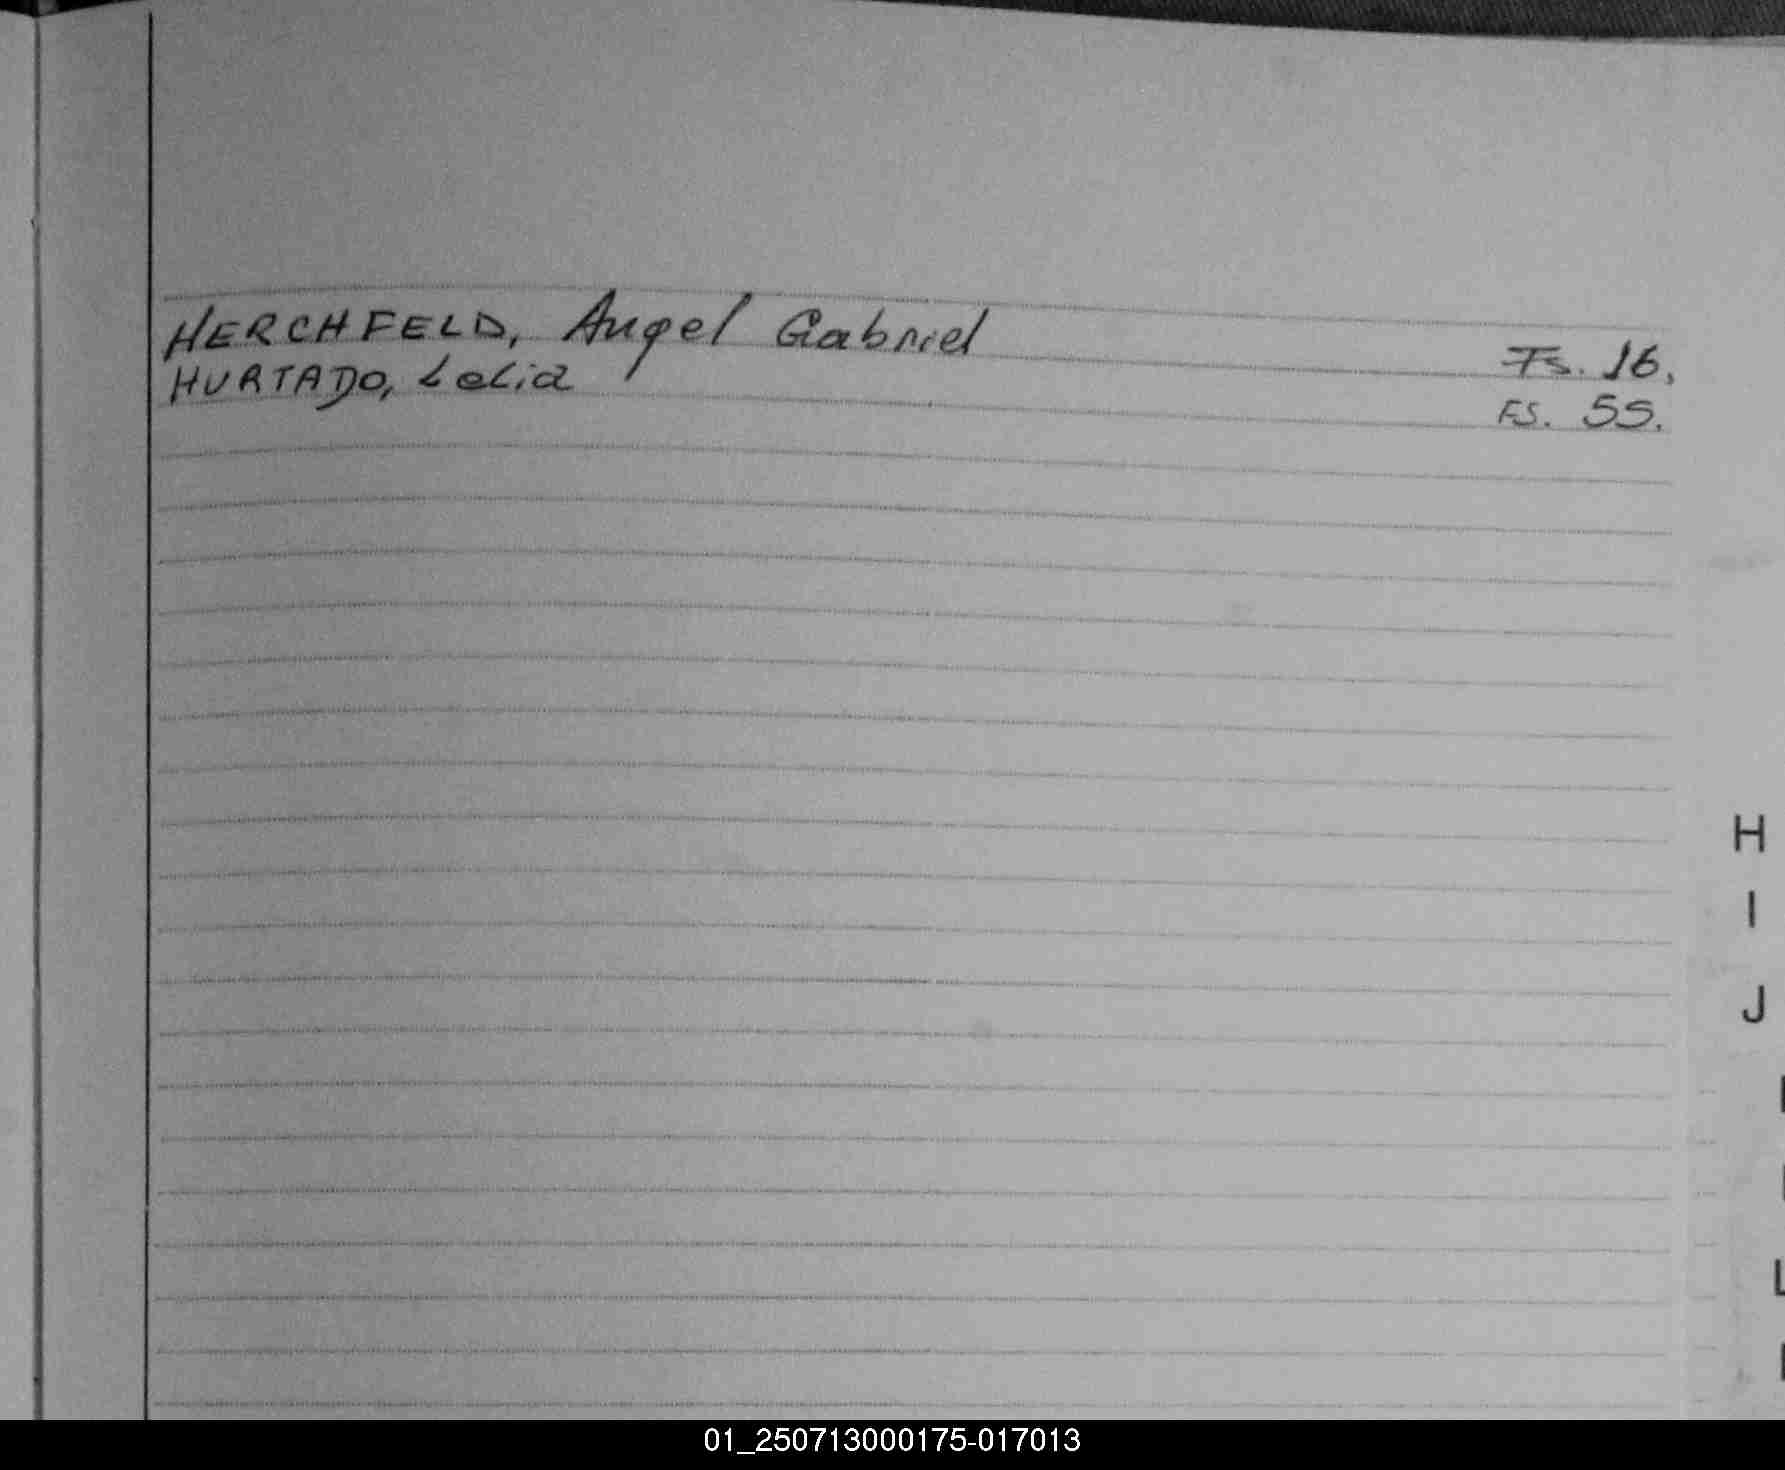 HERCHFELD, Angel Gabriel Fs. 16,
HURTADO, Lelia FS. 55.
H
I
J
L
01_250713000175-017013